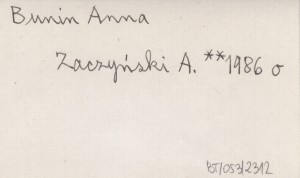 Bunin Anna
Zaczyński A. **1986 o
BT/053/2312